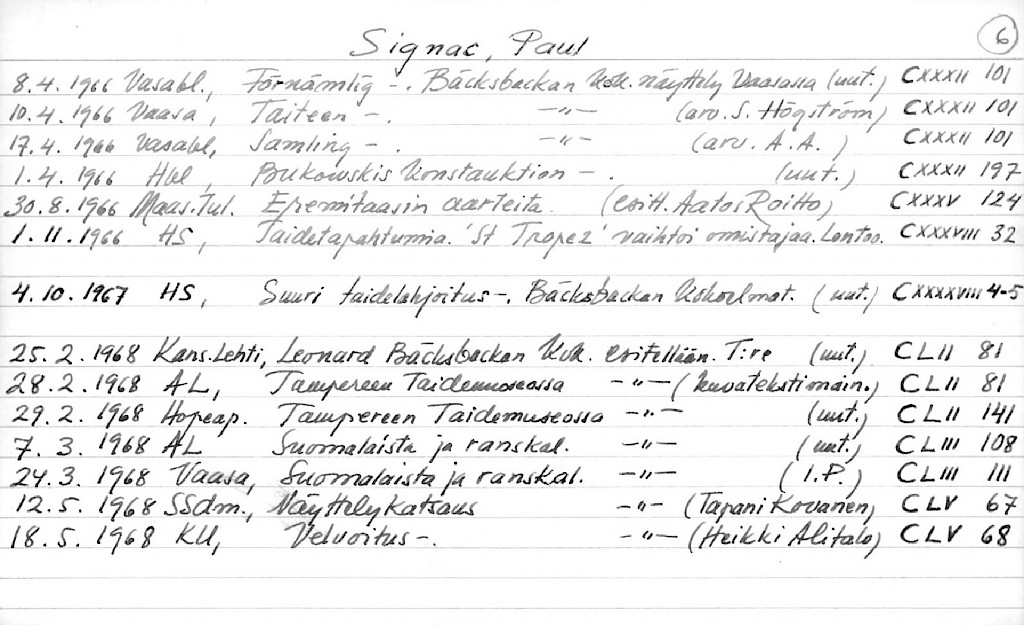 6
Signac, Paul
8.4.1966 Vasabl., Förnämlig -. Bäcksbackan kok. näyttely Vaasassa (uut.) CXXXII 101
10.4.1966 Vaasa, Taiteen -. -"- (arv. S. Högström) CXXXII 101
17.4.1966 Vasabl, Samling -. -"- (arv. A.A.) CXXXII 101
1.4.1966 Hbl, Bukowskis konstauktion -. (uut.) CXXXII 197
30.8.1966 Maas.Tul. Eremitaasin aarteita. (esitt. Aatos Roitto) CXXXV 124
1.11.1966 HS, Taidetapahtumia. 'St Tropez' vaihtoi omistajaa. Lontoo. CXXXVIII 32
4.10.1967 HS, Suuri taidelahjoitus -. Bäcksbackan kokoelmat. (uut.) CXXXXVIII 4-5
25.2.1968 Kans.Lehti, Leonard Bäcksbackan kok. esitellään. T:re (uut.) CLII 81
28.2.1968 AL, Tampereen Taidemuseossa -"- (kuvatekstimain.) CLII 81
29.2.1968 Hopeap. Tampereen Taidemuseossa -"- (uut.) CLII 141
7.3.1968 AL Suomalaista ja ranskal. -"- (uut.) CLIII 108
24.3.1968 Vaasa, Suomalaista ja ranskal. -"- (I.P.) CLIII 111
12.5.1968 SSdm., Näyttelykatsaus -"- (Tapani Kovanen) CLV 67
18.5.1968 KU, Velvoitus -. -"- (Heikki Alitalo) CLV 68